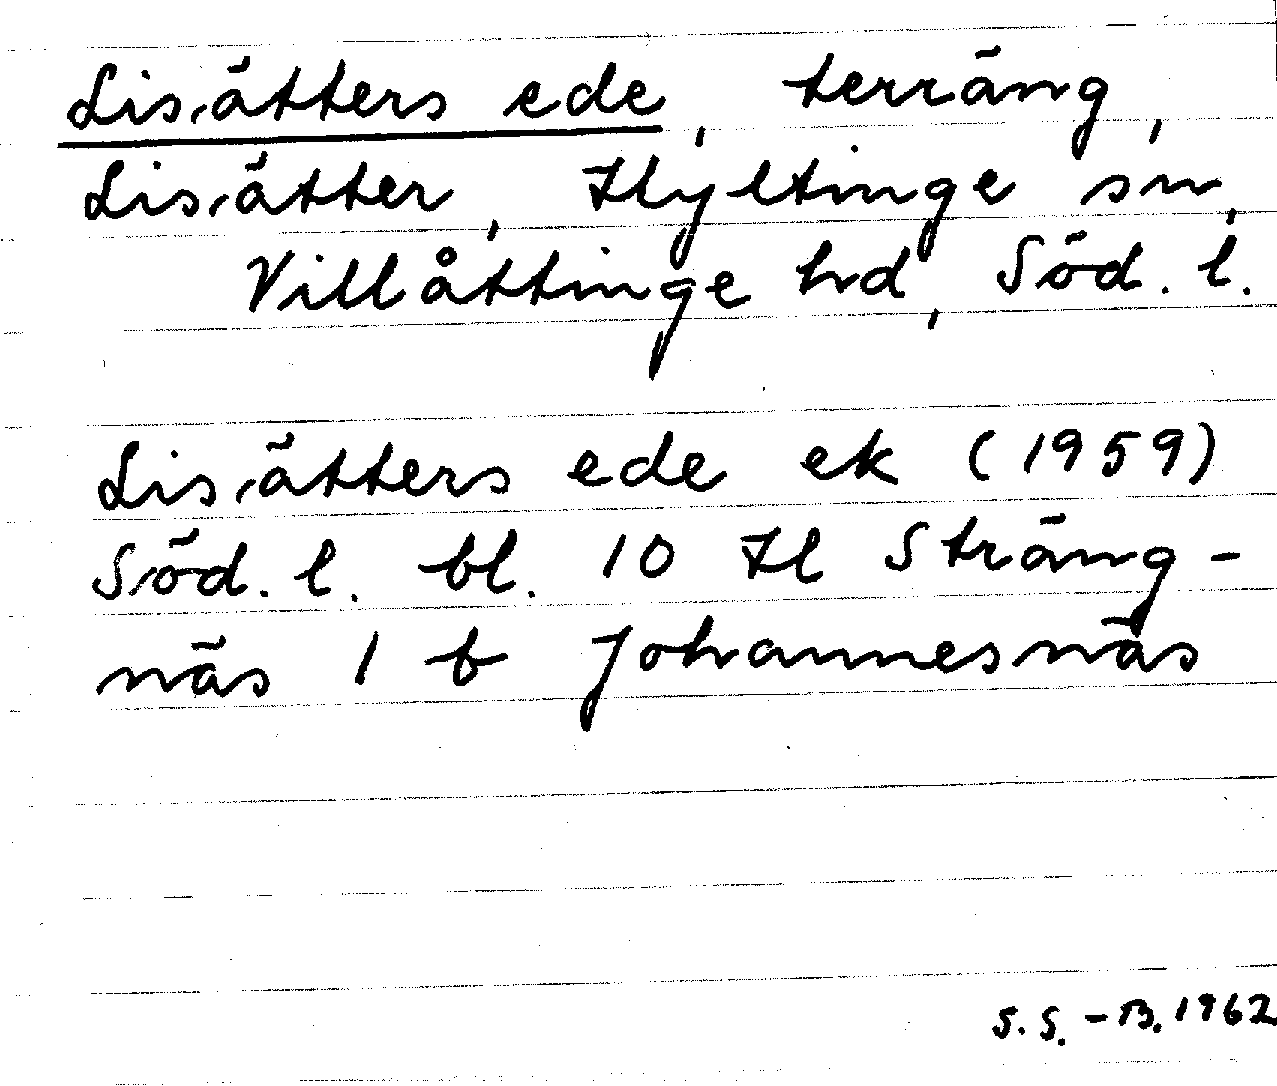 Lisätters ede, terräng,
Lisätter, Hyltinge sn,
Villåttinge hd, Söd. l.
Lisätters ede ek (1959)
Söd. l. bl. 10 H Sträng-
näs 1 b Johannesnäs
S. S. - B. 1962